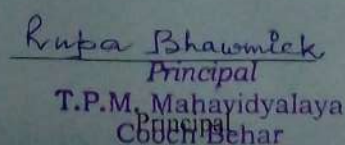 Rupa Bhawmick
Principal
T.P.M. Mahavidyalaya
Principal
Cooch Behar